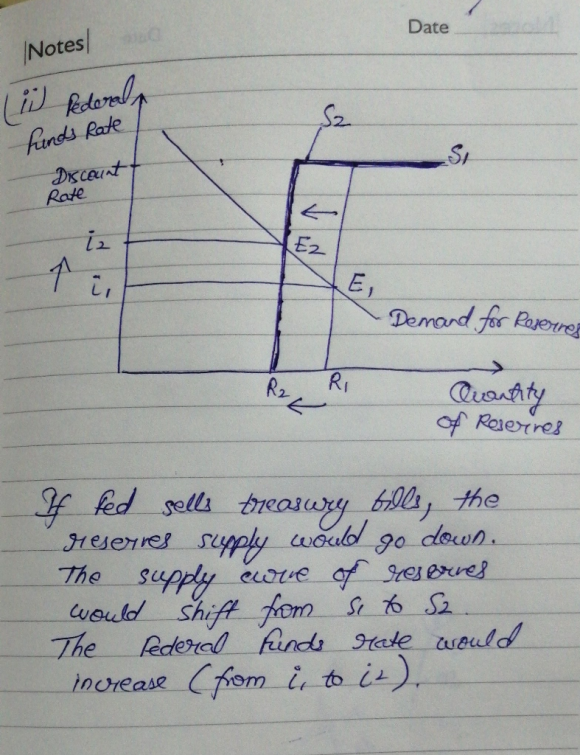 Date
|Notes|
(ii) Federal
Funds Rate
S2
S1
Discount
Rate
i2
E2
i1
E1
Demand for Reserves
R2
R1
Quantity
of Reserves
If Fed sells treasury bills, the
reserves supply would go down.
The supply curve of reserves
would shift from S1 to S2.
The Federal Funds rate would
increase (from i1 to i2).